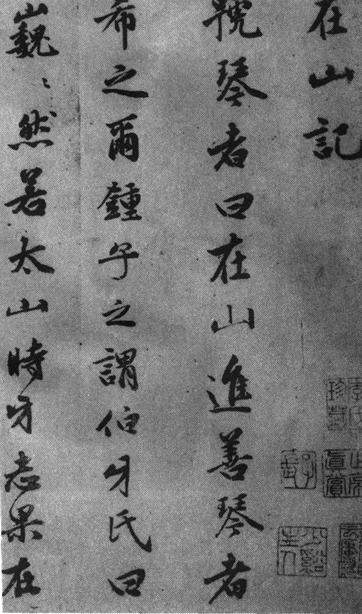 在山記
號琴者曰在山進善琴者
希之爾鍾子之謂伯牙氏曰
巍〻然若太山時牙志果在
真賞